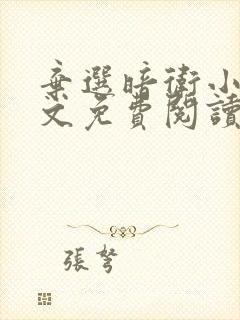 棄選暗衛小
文免費閱讀
張弩